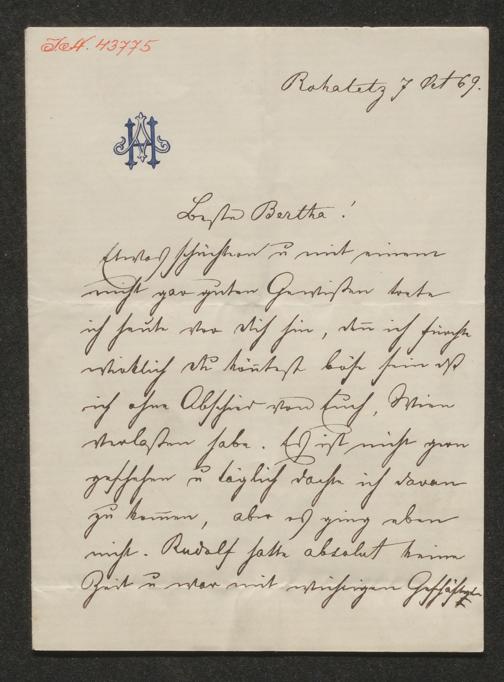 I.N. 43775
Rohaletz 7 Okt 69.
AH
Beste Bertha!
Etwas schüchtern u mit einem
nicht gar guten Gewißen trete
ich heute vor Dich hin, den̄ ich fürchte
wirklich Du kön̄test böse sein dß
ich ohne Abschied von Euch, Wien
verlaßen habe. Es ist nicht gern
geschehen u täglich dachte ich daran
zu kom̄en, aber es ging eben
nicht. Rudolf hatte absolut keine
Zeit u war mit wichtigen